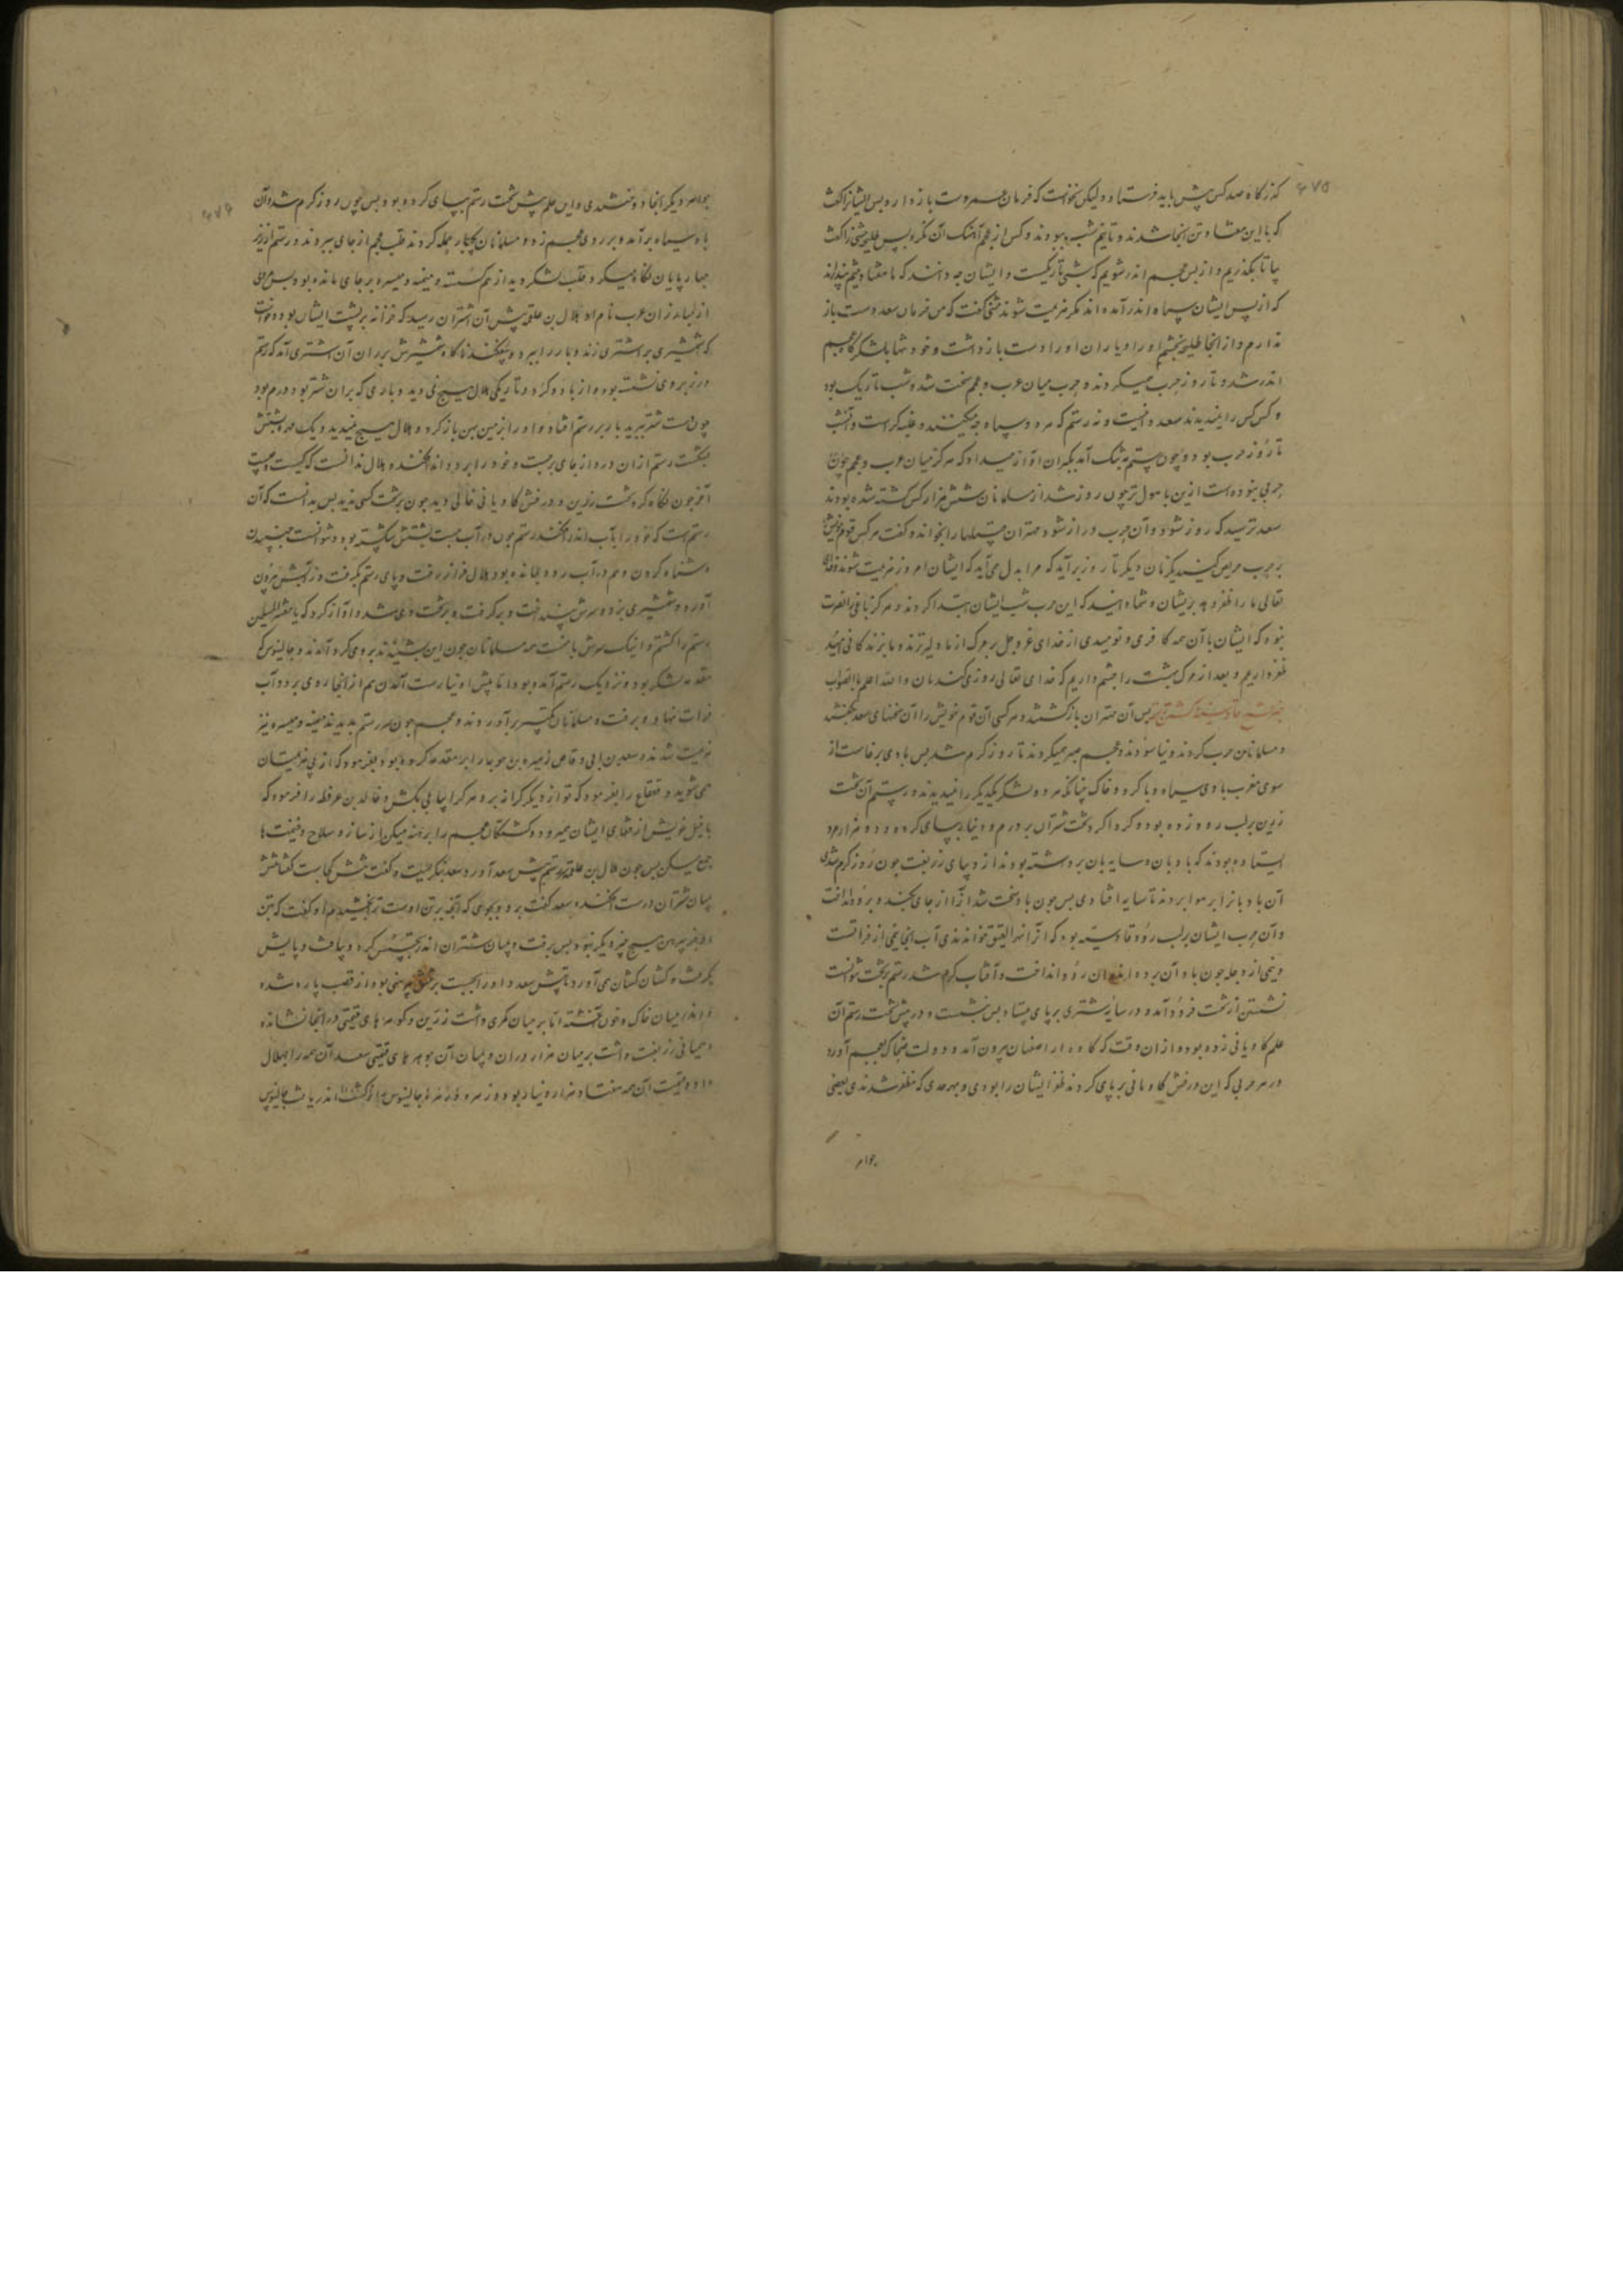 که زکاه صد کس پیش باید فرستاد ولیکن نخواست که فرمان عمر دست بازدارد پس ایشانرا گفت
که با این هفتاد تن آنجا شدند و تا نیم شب ببودند و کس از عجم آهنک آن نکرد پس طلیحه مثنی را گفت
بیا تا بگذریم و از پس عجم اندر شویم که شبی تاریکست و ایشان چه دانند که ما هفتاد تنیم پندارند
که از پس ایشان سپاه اندر آمده اند مکر هزیمت شوند مثنی گفت که من فرمان سعد دست باز
ندارم و از آنجا طلیحه بخشم او را و یاران او را دست بازداشت و خود تنها بلشکرگاه عجم
اندر شد و تا روز حرب میکردند و حرب میان عرب و عجم سخت شد و شب تاریک بود
و کس کس را نمیدیدند سعد دانست و نه رستم که هر دو سپاه چه میکنند و غلبه کراست و آنشب
تا روز حرب بود و چون رستم به تنگ آمد بیکران آواز میداد که هرگز میان عرب و عجم چون
حربی نبوده است ازین با هول تر چون روز شد از مسلمانان شش هزار کس کشته شده بودند
سعد ترسید که روز شود و آن حرب دراز شود مهتران قبیلها را بخواند و گفت هر کس قوم خویش
بر حرب حریص کنید یکزمان دیگر تا روز برآید که مرا بدل می آید که ایشان امروز هزیمت شوند و خدای
تعالی ما را ظفر دهد بریشان و شما دانید که این حرب شب ایشان ابتدا کردند و هرگز باغی را نصرت
نبود که ایشان با آن همه کافری و نومیدی از خدای عز و جل بر مرک از ما دلیرترند و ما بزندکانی امید
ظفر داریم و بعد از مرک بهشت را چشم داریم که خدای تعالی روزی کندمان والله اعلم بالصواب
پس آن مهتران بازکشتند و هر کسی آن قوم خویش را آن سخنهای سعد بگفتند
و مسلمانان حرب کردند و نیاسودند و عجم صبر میکردند تا روز کرم شد پس بادی برخاست از
سوی مغرب بادی سیاه و با کرد و خاک چنانکه هر دو لشکر یکدیگر را نمیدیدند و رستم آن تخت
زرین بر لب رود زده بود و کرداکرد تخت شتران بر درم و دینار بپای کرده و دو هزار مرد
ایستاده بودند که بادبان و سایه بان برداشته بودند از دیبای زربفت چون روز کرم شدی
آن بادبانرا بر هوا بردند تا سایه افتادی پس چون باد سخت شد آنرا از جای بکند و برود انداخت
و آن حرب ایشان بر لب رود قادسیه بود که آنرا نهر العتیق خوانندی آب آنجا نیمی از فراتست
و نیمی از دجله چون باد آن برد اندران رود انداخت و آفتاب کرم شد رستم بر تخت نتوانست
نشستن از تخت فرود آمد و در سایه شتری بر پای ایستاد پس بنشست و در پیش تخت رستم آن
علم کاویانی زده بود و از ان وقت که کاوه از اصفهان بیرون آمد و دولت ضحاک بعجم آورد
در هر حربی که این درفش کاویانی بر پای کردند ظفر ایشان را بودی و بهر حدی که مظفر شدندی بعضی
جواهر
جواهر دیگر آنجا دوختندی و این علم پیش تخت رستم بپای کرده بود پس چون روز کرم شد و آن
باد سیاه برآمد و بر روی عجم زد و مسلمانان بیکبار حمله کردند قلب عجم از جای ببردند و رستم از زیر
چهارپایان نگاه میکرد قلب لشکر دید از هم کسسته و میمنه و میسره بر جای مانده بود پس مردی
از مبارزان عرب نام او هلال بن علقمه پیش آن اشتران رسید که خزانه بر پشت ایشان بود و خواست
که شمشیری بر اشتری زند و بار را ببرد و بیفکند ناکاه شمشیرش بر ران آن اشتری آمد که رستم
در زیر وی نشسته بود و از باد و کرد و تاریکی هلال هیچ نمی دید و باری که بر ان شتر بود درم بود
چون دست شتر ببرید بار بر رستم افتاد و او را بزمین پهن باز کرد و هلال هیچ نمیدید و یک مهره پشتش
بشکست رستم از ان درد از جای برجست و خود را برود اندر افکند و هلال ندانست که کیست و چیست
آخر چون نگاه کرد تخت زرین و درفش کاویانی خالی دید چون بر تخت کسی ندید پس بدانست که آن
رستم است که خود را بآب اندر افکند رستم چون در آب جست پشتش شکسته بود و نتوانست جنبیدن
و شناه کردن و هم در آب رود بمانده بود هلال فراز رفت و پای رستم بکرفت و ز آبش بیرون
آورد و شمشیری بزد و سرش بینداخت و برکرفت و بر تخت وی شد و آواز کرد که یا معشر المسلمین
رستم را کشتم و اینک سرش با منست همه مسلمانان چون این بشنیدند بر وی کرد آمدند و جالینوس که
مقدمه لشکر بود و نزدیک رستم آمده بود تا پیش او نیارست آمدن هم از آنجا روی برود آب
فرات نهاد و برفت و مسلمانان تکبیر برآوردند و عجم چون سر رستم بدیدند میمنه و میسره نیز
هزیمت شدند و سعد بن ابی وقاص زهره بن حویه را بر مقدمه کرده بود بفرمود که از پی هزیمتیان
می شوید و قعقاع را بفرمود که تو از دیگر کرانه برو هر کرا یابی بکش و خالد بن عرفطه را فرمود که
با خیل خویش از قفای ایشان میرود و کشتگان عجم را برهنه میکن از ساز و سلاح و غنیمت ها
جمع میکن پس چون هلال بن علقمه سر رستم پیش سعد آورد سعد بنگریست و گفت تنش کجاست گفتا تنش
میان شتران در است افکنده سعد گفت برو و بجوی که آنچه بر تن اوست ترا بخشیدم او گفت که بتن
او بجز پیرهن هیچ چیز دیگر نبود پس برفت و میان شتران اندر بجستش کرد و بیافت و پایش
بگرفت و کشان کشان می آورد تا پیش سعد و او را بجست بر تنش پیرهنی بود از قصب پاره شده
و اندر میان خاک و خون آغشته اما بر میان کمری داشت زرین و کوهرهای قیمتی در انجا نشانده
و همیانی زربفت داشت بر میان هزار در ان و میان آن جوهرهای قیمتی سعد آن همه را بهلال
داد و قیمت آن همه هفتاد هزار دینار بود و زهره جالینوس را اندر یافت جالینوس